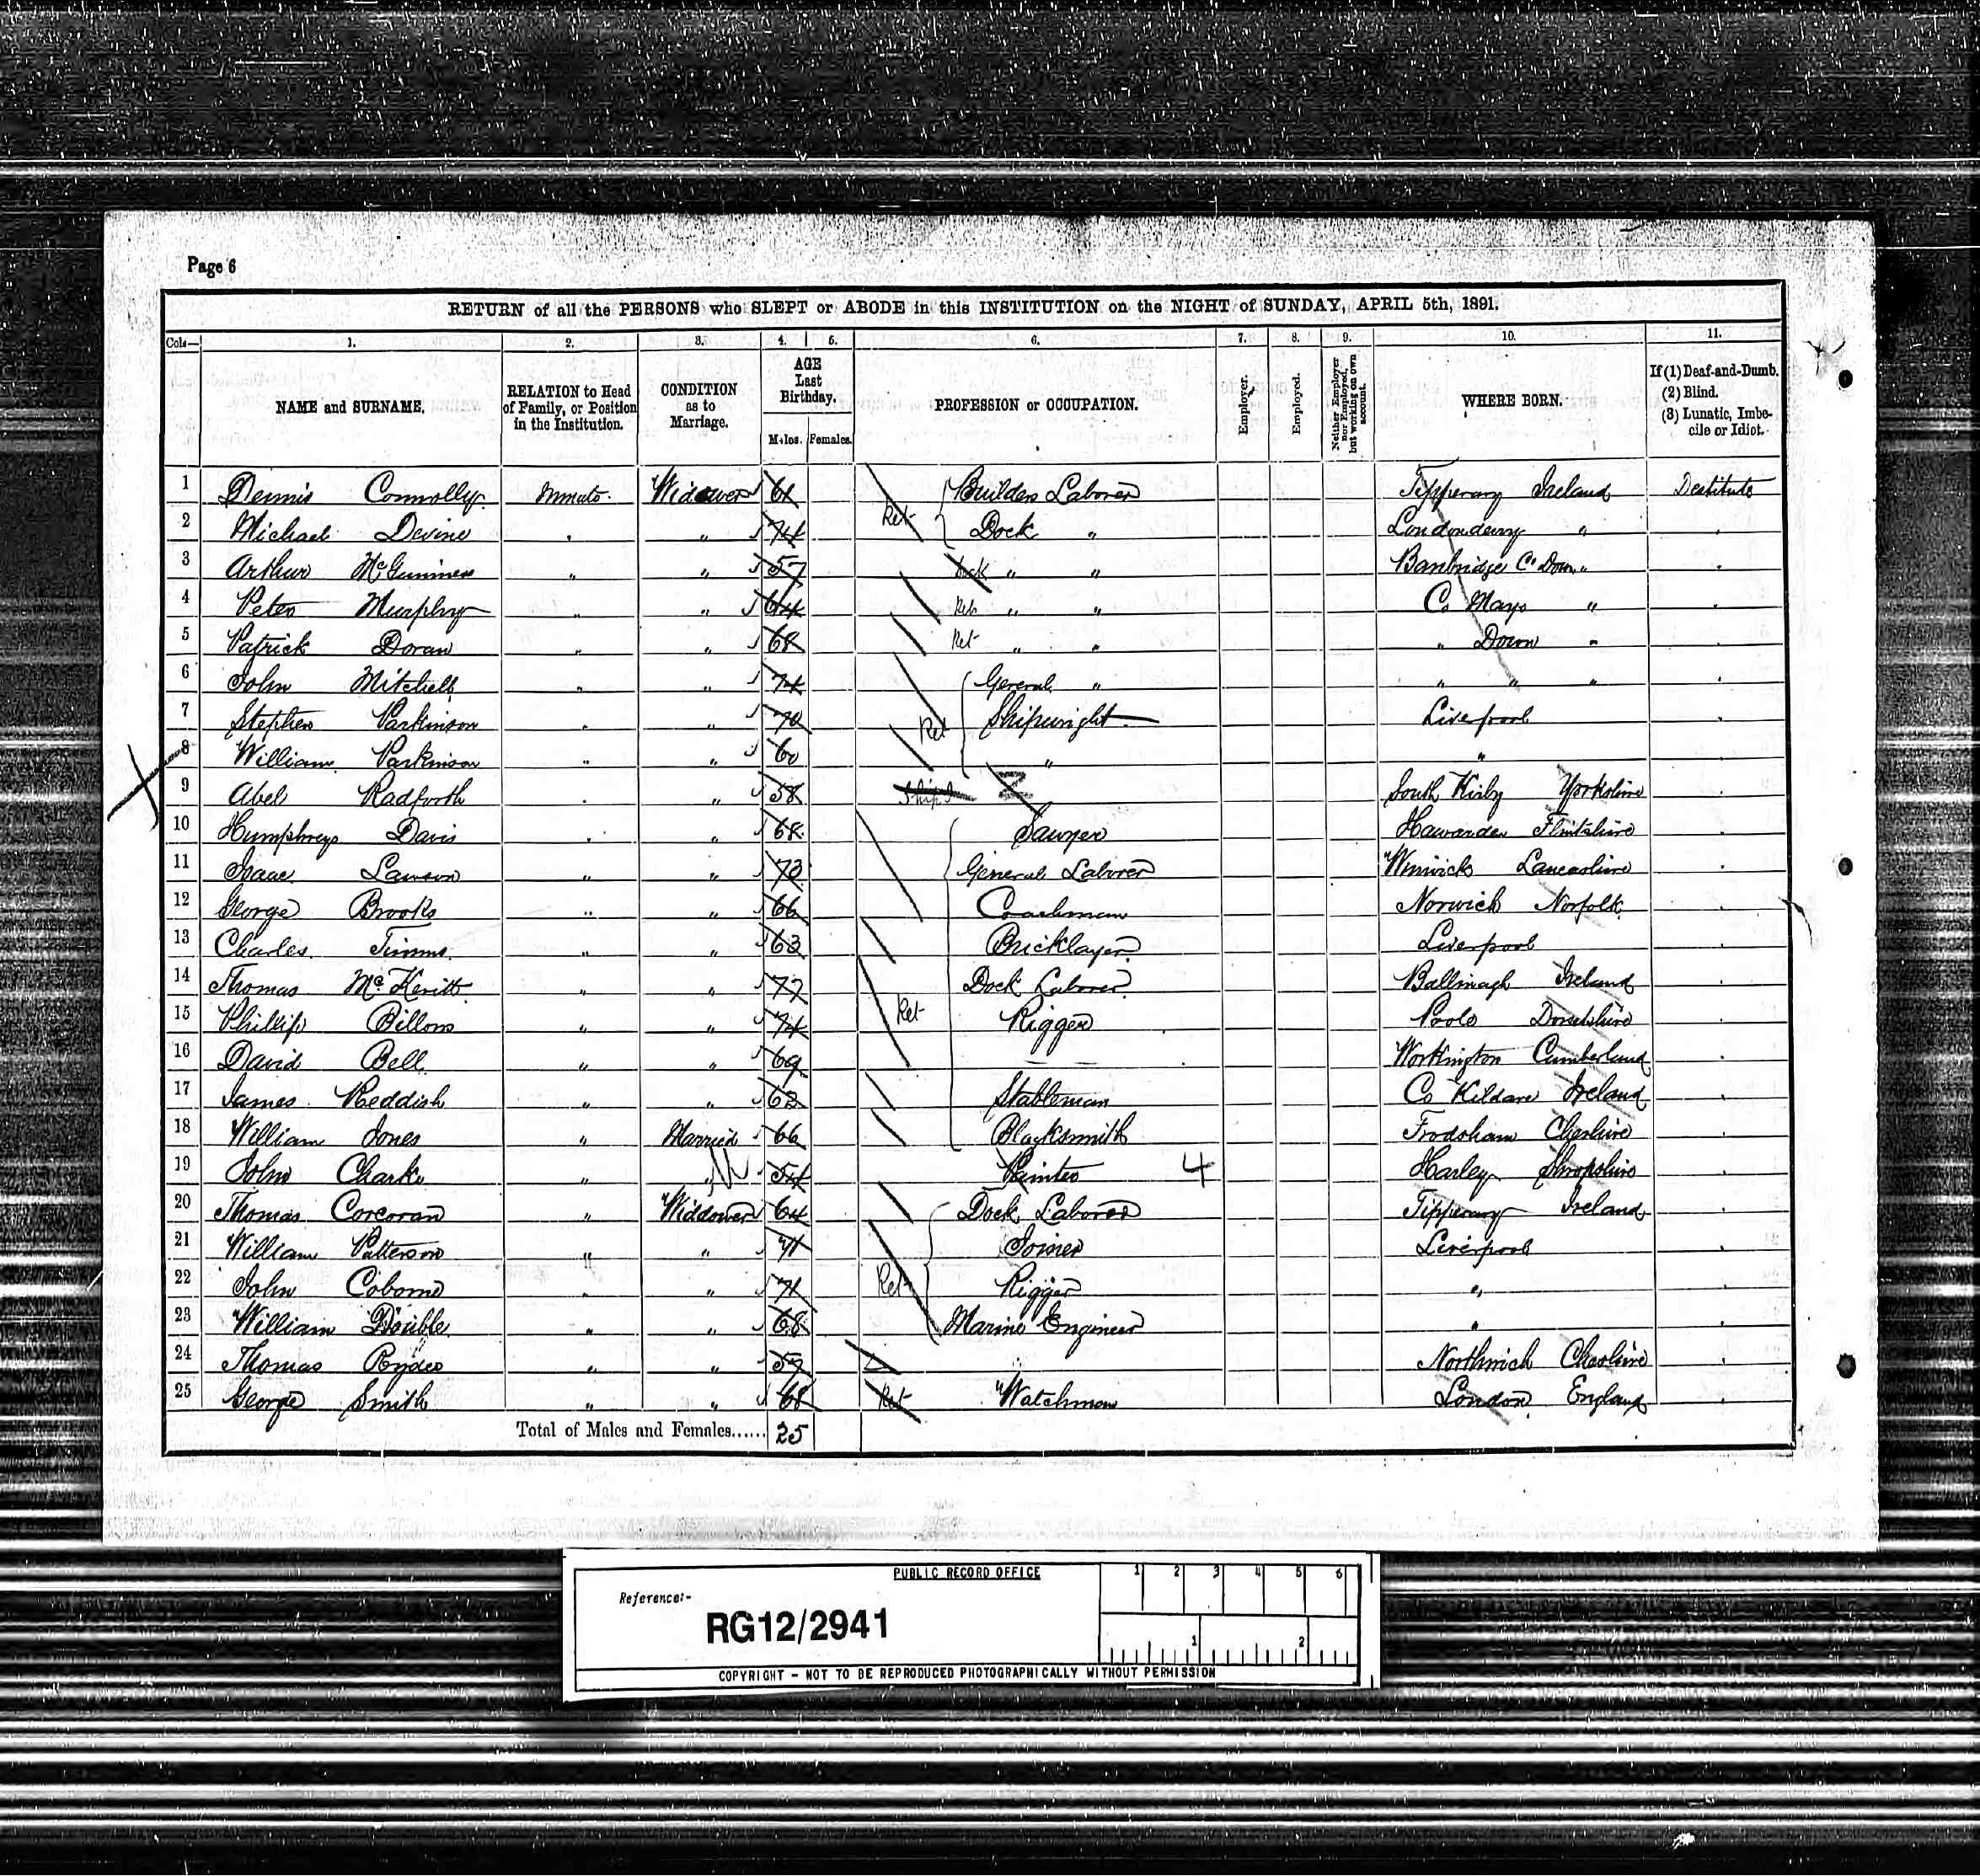 Page 6
RETURN of all the PERSONS who SLEPT or ABODE in this INSTITUTION on the NIGHT of SUNDAY, APRIL 5th, 1891.
Cols— 1. 2. 3. 4. 5. 6. 7. 8. 9. 10. 11.
NAME and SURNAME. RELATION to Head of Family, or Position in the Institution. CONDITION as to Marriage. AGE Last Birthday. Males. Females. PROFESSION or OCCUPATION. Employer. Employed. Neither Employer nor Employed, but working on own account. WHERE BORN. If (1) Deaf-and-Dumb. (2) Blind. (3) Lunatic, Imbecile or Idiot.
1 Dennis Connolly Inmate Widower 61 Builders Laborer Tipperary Ireland Destitute
2 Michael Devine " " 74 Ret Dock " Londonderry "
3 Arthur McGuinness " " 57 Dock " " Banbridge Co Down "
4 Peter Murphy " " 64 Ret " " Co Mayo "
5 Patrick Doran " " 68 Ret " " " Down "
6 John Mitchell " " 74 General " " " "
7 Stephen Parkinson " " 70 Ret Shipwright Liverpool
8 William Parkinson " " 60 " "
9 Abel Radforth " " 58 South Kirby Yorkshire
10 Humphreys Davis " " 68 Sawyer Hawarden Flintshire
11 Isaac Lawson " " 73 General Laborer Winwick Lancashire
12 George Brooks " " 66 Coachman Norwich Norfolk
13 Charles Timms " " 63 Bricklayer Liverpool
14 Thomas McKevitt " " 77 Dock Laborer Ballinagh Ireland
15 Phillip Billows " " 74 Ret Rigger Poole Dorsetshire
16 David Bell " " 69 — Workington Cumberland
17 James Reddish " " 62 Stableman Co Kildare Ireland
18 William Jones " Married 66 Blacksmith Frodsham Cheshire
19 John Clarke " " 54 Painter 4 Harley Shropshire
20 Thomas Corcoran " Widdower 64 Dock Laborer Tipperary Ireland
21 William Patterson " " 71 Joiner Liverpool
22 John Coborne " " 71 Ret Rigger "
23 William Double " " 68 Marine Engineer "
24 Thomas Ryder " " 57 Northwich Cheshire
25 George Smith " " 68 Ret Watchman London England
Total of Males and Females...... 25
PUBLIC RECORD OFFICE
1 2 3 4 5 6
Reference:-
RG12/2941
1 2
COPYRIGHT - NOT TO BE REPRODUCED PHOTOGRAPHICALLY WITHOUT PERMISSION